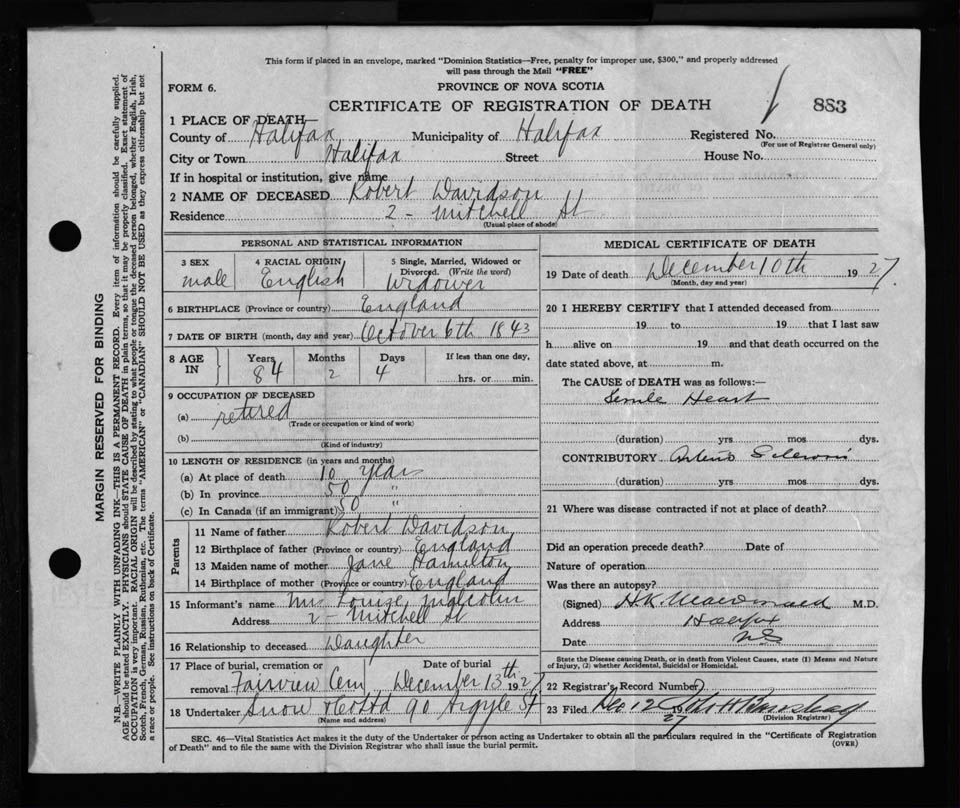 This form if placed in an envelope, marked "Dominion Statistics—Free, penalty for improper use, $300," and properly addressed
will pass through the Mail "FREE"
FORM 6.
PROVINCE OF NOVA SCOTIA
CERTIFICATE OF REGISTRATION OF DEATH
883
1 PLACE OF DEATH—
County of Halifax Municipality of Halifax Registered No.
(For use of Registrar General only)
City or Town Halifax Street House No.
If in hospital or institution, give name
2 NAME OF DECEASED Robert Davidson
Residence 2 - Mitchell St
(Usual place of abode)
PERSONAL AND STATISTICAL INFORMATION
3 SEX male
4 RACIAL ORIGIN English
5 Single, Married, Widowed or Divorced. (Write the word) Widower
6 BIRTHPLACE (Province or country) England
7 DATE OF BIRTH (month, day and year) October 6th 1843
8 AGE IN Years 84 Months 2 Days 4 If less than one day, hrs. or min.
9 OCCUPATION OF DECEASED
(a) retired
(Trade or occupation or kind of work)
(b)
(Kind of industry)
10 LENGTH OF RESIDENCE (in years and months)
(a) At place of death 10 years
(b) In province 50 "
(c) In Canada (if an immigrant) 50 "
Parents
11 Name of father Robert Davidson
12 Birthplace of father (Province or country) England
13 Maiden name of mother Jane Hamilton
14 Birthplace of mother (Province or country) England
15 Informant's name Mrs Louise Malcolm
Address 2 - Mitchell St
16 Relationship to deceased Daughter
17 Place of burial, cremation or removal Fairview Cem Date of burial December 13th 1927
18 Undertaker Snow & Co Ltd 90 Argyle St
(Name and address)
MEDICAL CERTIFICATE OF DEATH
19 Date of death December 10th 1927
(Month, day and year)
20 I HEREBY CERTIFY that I attended deceased from
19 to 19 that I last saw
h alive on 19 and that death occurred on the
date stated above, at m.
The CAUSE of DEATH was as follows:—
Senile Heart
(duration) yrs mos dys.
CONTRIBUTORY Arterio Sclerosis
(duration) yrs mos dys.
21 Where was disease contracted if not at place of death?
Did an operation precede death? Date of
Nature of operation
Was there an autopsy?
(Signed) H.K. Macdonald M.D.
Address Halifax
Date NS
State the Disease causing Death, or in death from Violent Causes, state (1) Means and Nature
of Injury, (2) whether Accidental, Suicidal or Homicidal.
22 Registrar's Record Number
23 Filed Dec 12 1927
(Division Registrar)
SEC. 46—Vital Statistics Act makes it the duty of the Undertaker or person acting as Undertaker to obtain all the particulars required in the "Certificate of Registration
of Death" and to file the same with the Division Registrar who shall issue the burial permit.
(OVER)
MARGIN RESERVED FOR BINDING
N.B.—WRITE PLAINLY WITH UNFADING INK—THIS IS A PERMANENT RECORD. Every item of information should be carefully supplied.
AGE should be stated EXACTLY. PHYSICIANS should STATE CAUSE OF DEATH in plain terms, so that it may be properly classified. Exact statement of
OCCUPATION is very important. RACIAL ORIGIN will be described by stating to what people or tongue the deceased person belonged, whether English, Irish,
Scotch, French, German, Russian, Ruthenian, etc. The terms "AMERICAN" or "CANADIAN" SHOULD NOT BE USED as they express citizenship but not
a race or people. See instructions on back of Certificate.